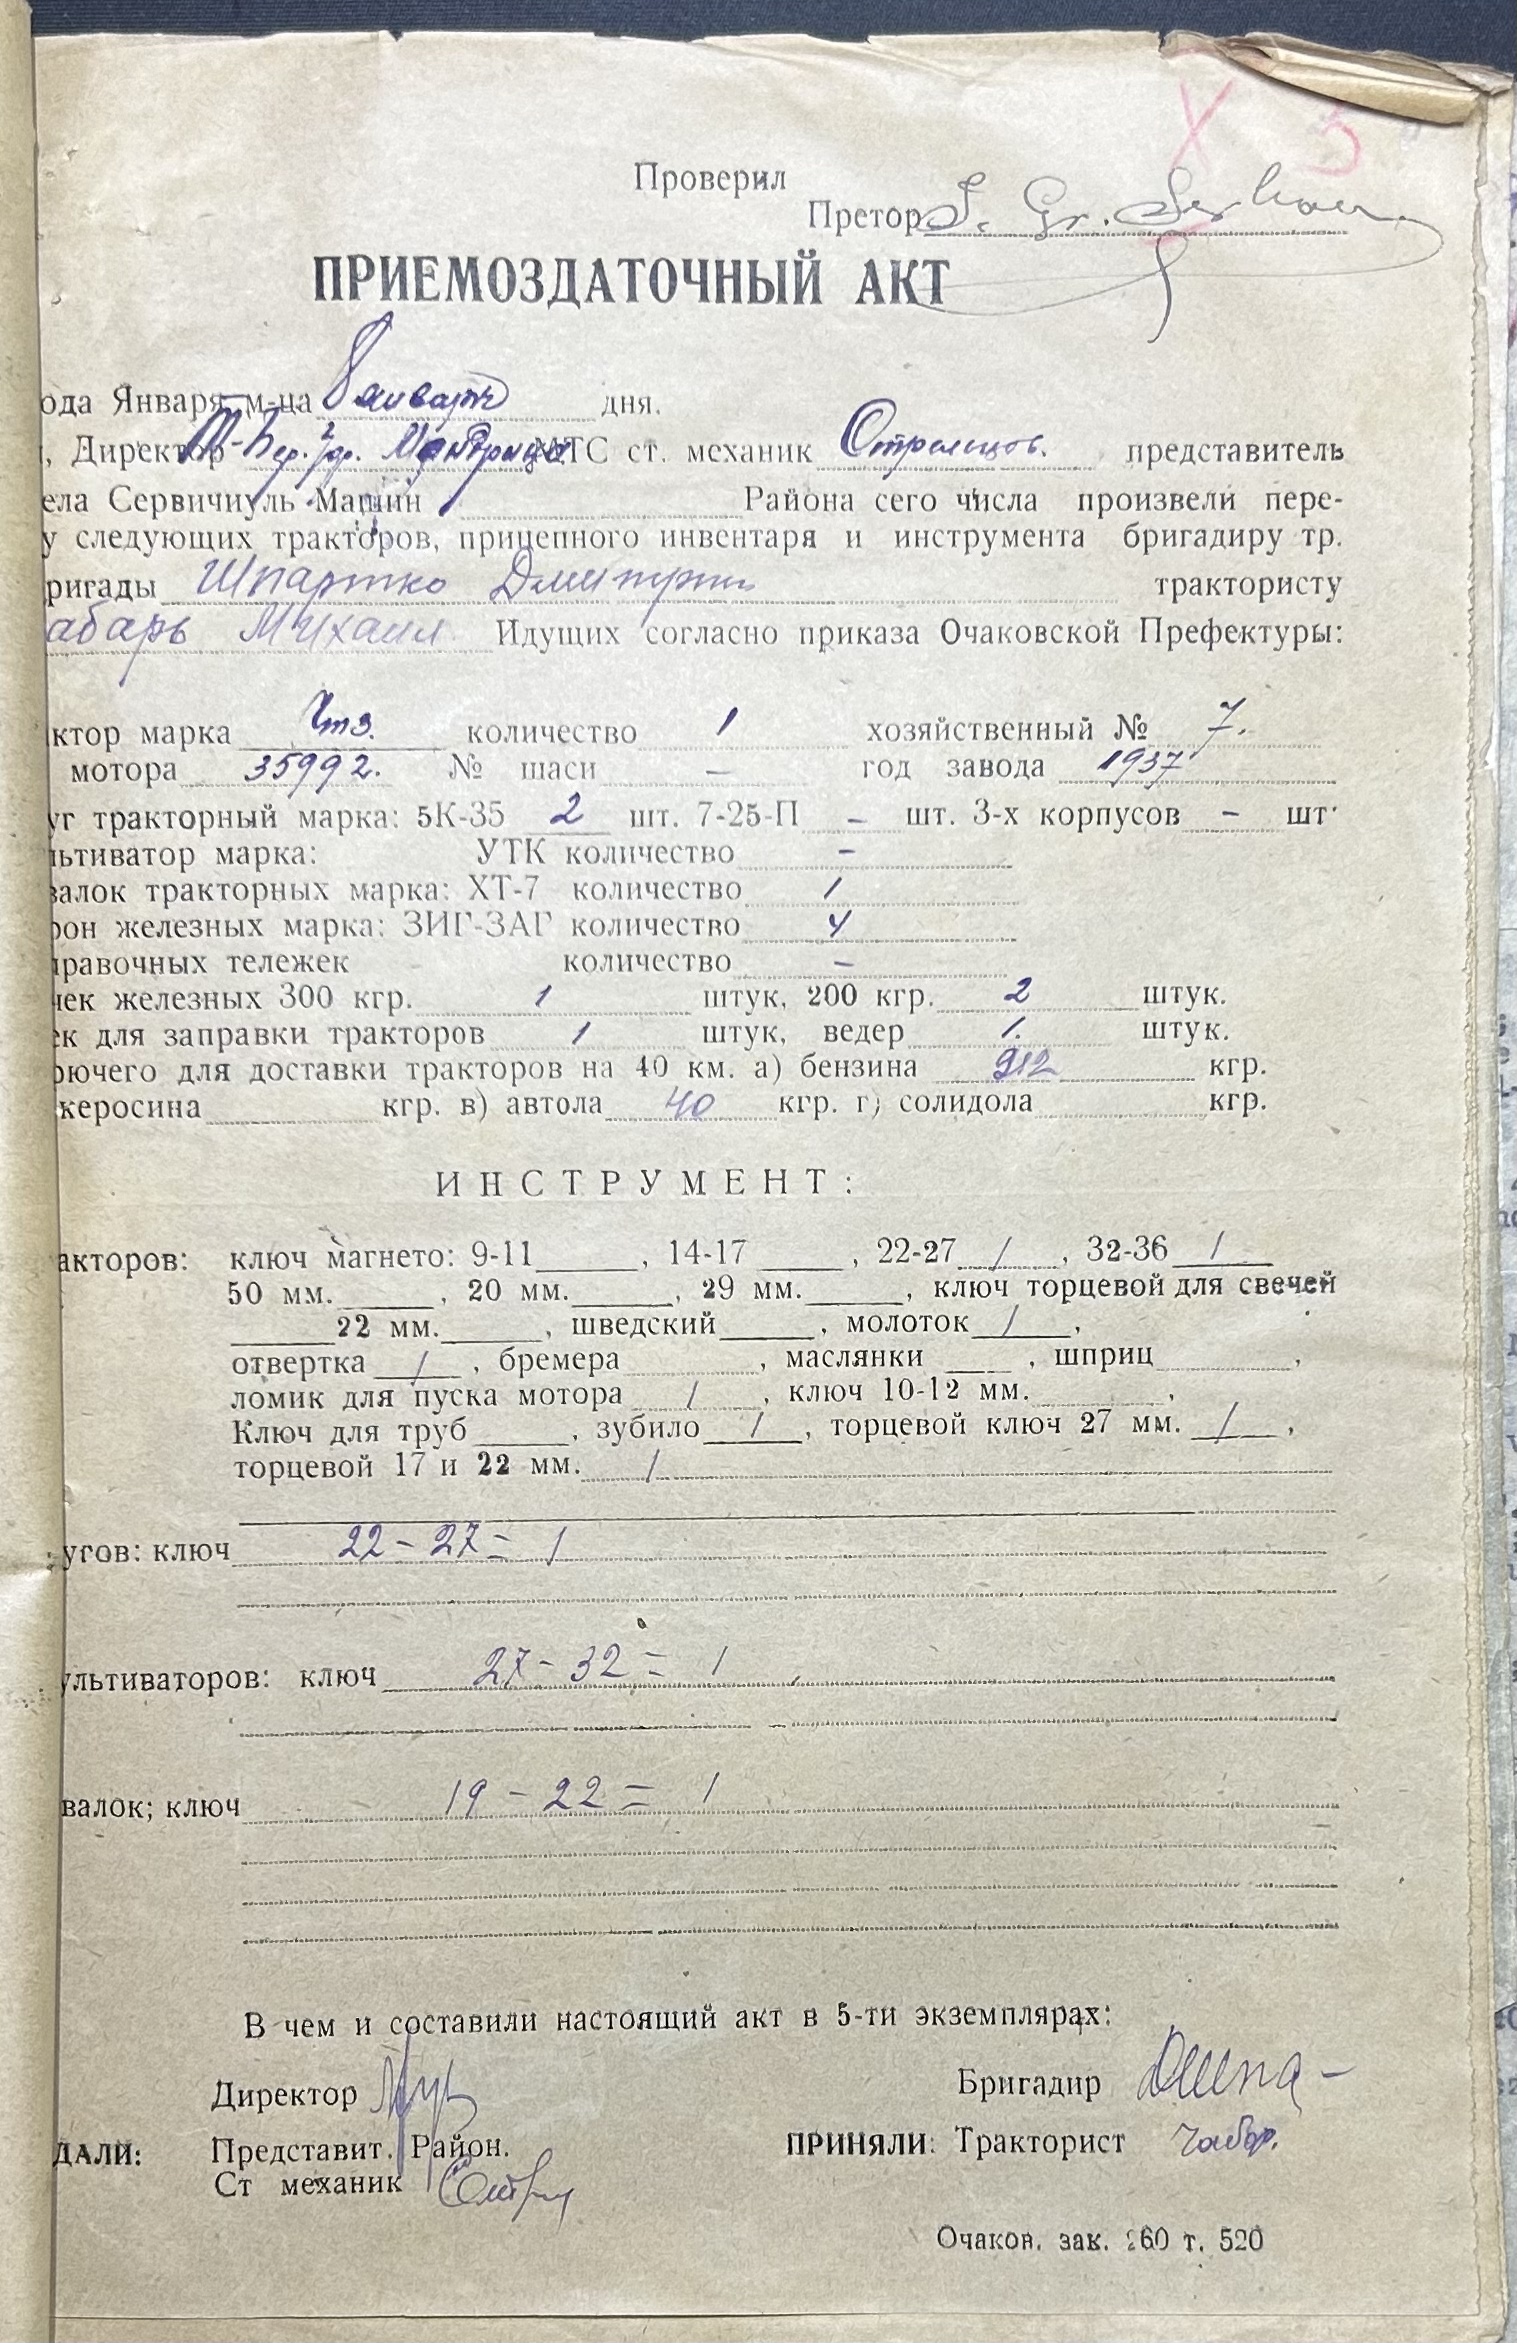 Х 3
Проверил
Претор
ПРИЕМОЗДАТОЧНЫЙ АКТ
ода Января м-ца 8 января дня.
, Директор МТС ст. механик Стрельцов. представитель
ела Сервичиуль Машин Района сего числа произвели пере-
у следующих тракторов, прицепного инвентаря и инструмента бригадиру тр.
ригады Шпартко Дмитрий трактористу
абарь Михаил Идущих согласно приказа Очаковской Префектуры:
ктор марка Чтз. количество 1 хозяйственный № 7.
мотора 35992. № шаси – год завода 1937
уг тракторный марка: 5К-35 2 шт. 7-25-П – шт. 3-х корпусов – шт·
льтиватор марка: УТК количество –
валок тракторных марка: ХТ-7 количество 1
рон железных марка: ЗИГ-ЗАГ количество 4
правочных тележек количество –
чек железных 300 кгр. 1 штук, 200 кгр. 2 штук.
ек для заправки тракторов 1 штук, ведер 1. штук.
рючего для доставки тракторов на 40 км. а) бензина 912 кгр.
керосина кгр. в) автола 40 кгр. г) солидола кгр.
ИНСТРУМЕНТ:
акторов: ключ магнето: 9-11 , 14-17 , 22-27 / , 32-36 /
50 мм. , 20 мм. , 29 мм. , ключ торцевой для свечей
22 мм. , шведский , молоток / ,
отвертка / , бремера , маслянки , шприц ,
ломик для пуска мотора / , ключ 10-12 мм. ,
Ключ для труб , зубило / , торцевой ключ 27 мм. / ,
торцевой 17 и 22 мм. /
угов: ключ 22 – 27 = 1
ультиваторов: ключ 27 – 32 = 1
валок; ключ 19 – 22 = 1
В чем и составили настоящий акт в 5-ти экземплярах:
Директор Бригадир
ДАЛИ: Представит. Район. ПРИНЯЛИ: Тракторист Чабар.
Ст механик
Очаков. зак. 260 т. 520